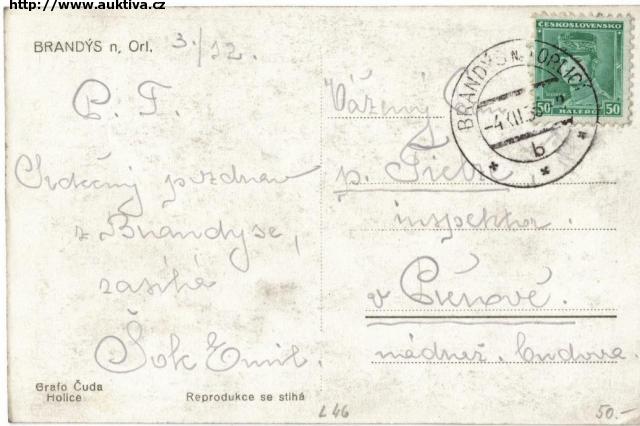 http://www.auktiva.cz
BRANDÝS n, Orl.
3./12.
P. T.
Srdečný pozdrav
z Brandýse,
zasílá
Šok Emil.
Grafo Čuda
Holice
Reprodukce se stihá
ČESKOSLOVENSKO
50 50
HALÉŘŮ
BRANDÝS N. ORLICÍ
b
Vážený Pan
p.
inspektor.
v
L 46
50.-